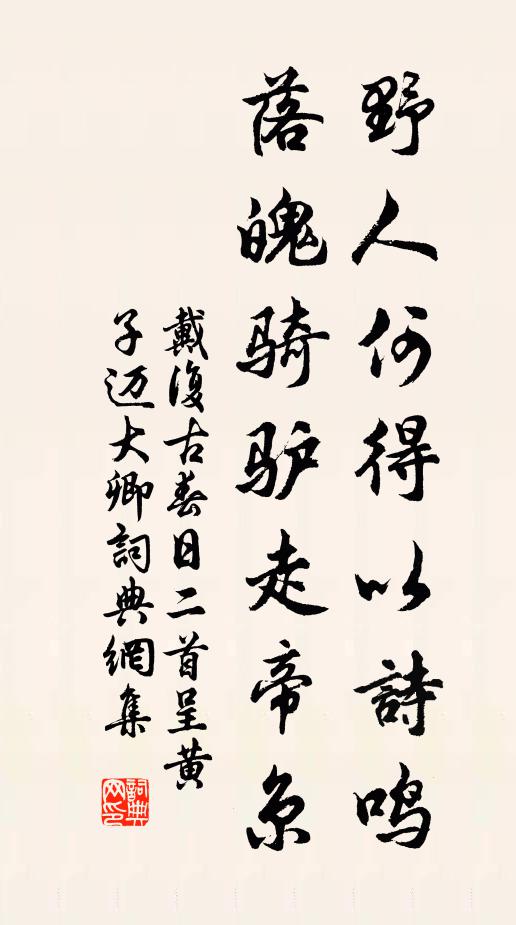 野人何得以詩鸣
落魄骑驴走帝京
戴復古春日二首呈黄
子迈大卿詞典網集
詞典網印